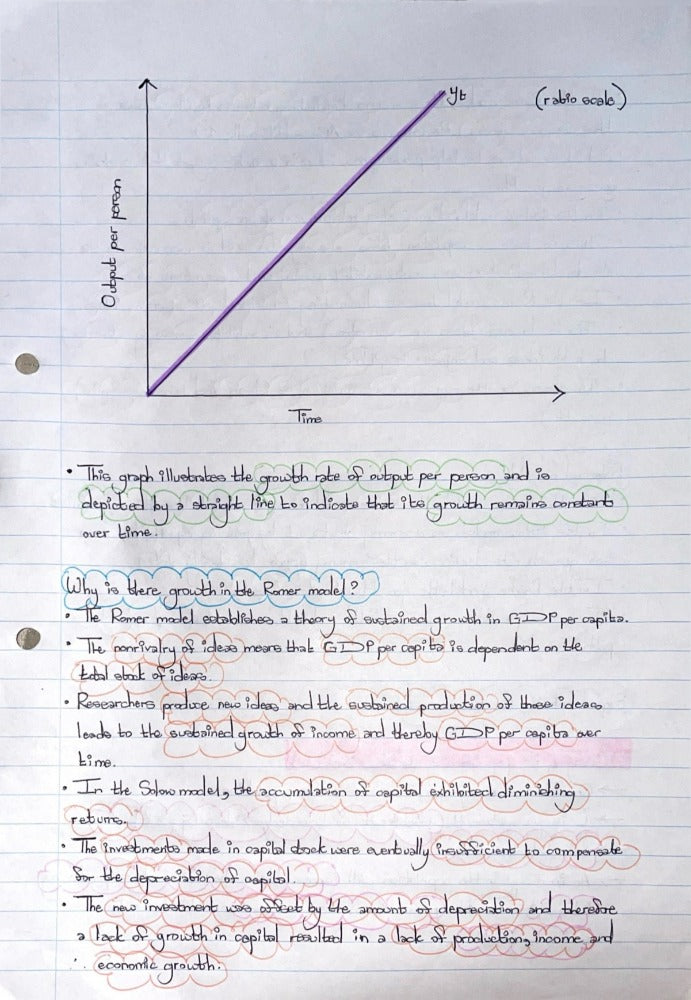 yt
(ratio scale)
Output per person
Time
• This graph illustrates the growth rate of output per person and is
depicted by a straight line to indicate that its growth remains constant
over time.
Why is there growth in the Romer model?
• The Romer model establishes a theory of sustained growth in GDP per capita.
• The nonrivalry of ideas means that GDP per capita is dependent on the
total stock of ideas.
• Researchers produce new ideas and the sustained production of those ideas
leads to the sustained growth of income and thereby GDP per capita over
time.
• In the Solow model, the accumulation of capital exhibited diminishing
returns.
• The investments made in capital stock were eventually insufficient to compensate
for the depreciation of capital.
• The new investment was offset by the amount of depreciation and therefore
a lack of growth in capital resulted in a lack of production, income and
∴ economic growth.